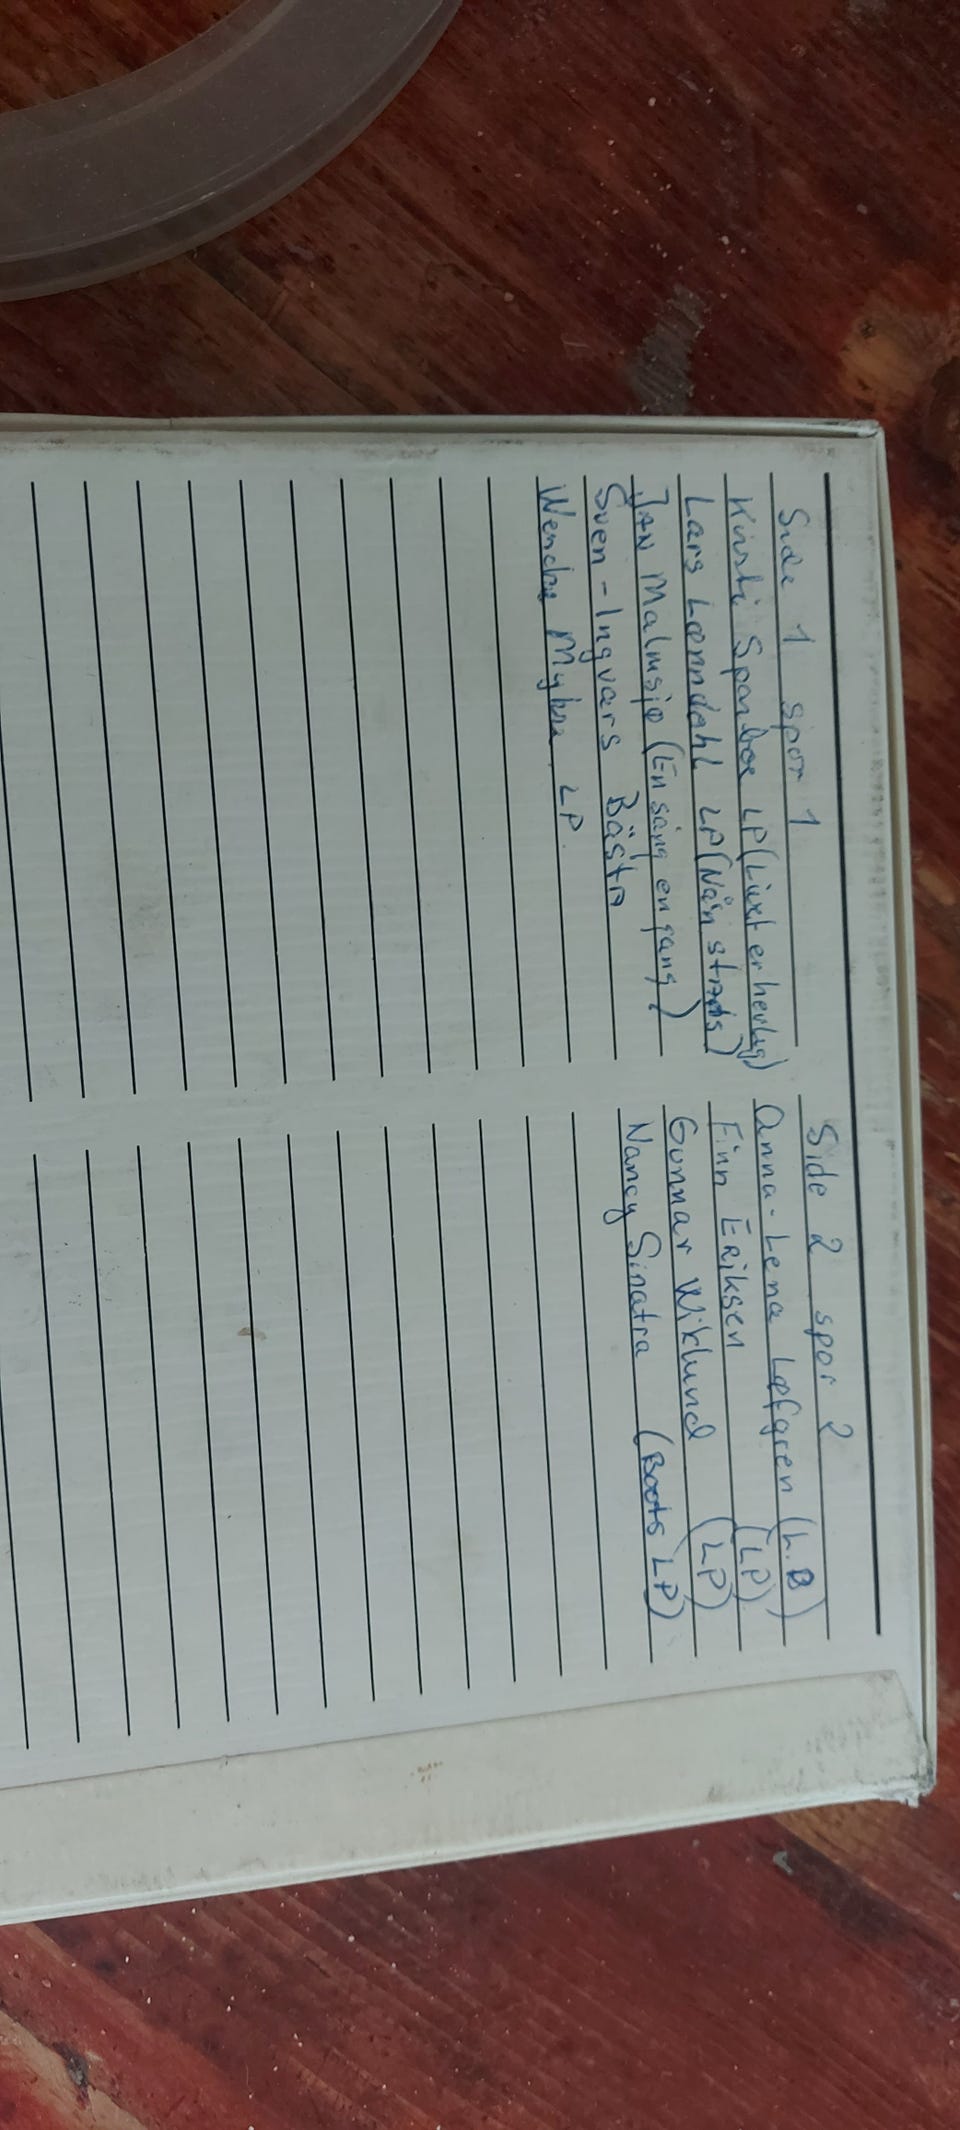 Side 1 spor 1
Kirsti Sparboe LP (Livet er herlig)
Lars Lønndahl LP (Nån strds)
JAN Malmsjø (En sång en gang)
Sven-Ingvars Bästa
Wenche Myhre LP
Side 2 spor 2
Anna-Lena Løfgren (L.B)
Finn Eriksen (LP)
Gunnar Wiklund (LP)
Nancy Sinatra (Boots LP)